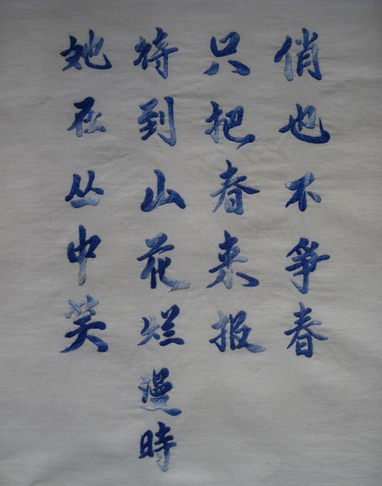 俏也不争春
只把春来报
待到山花烂漫時
她在丛中笑